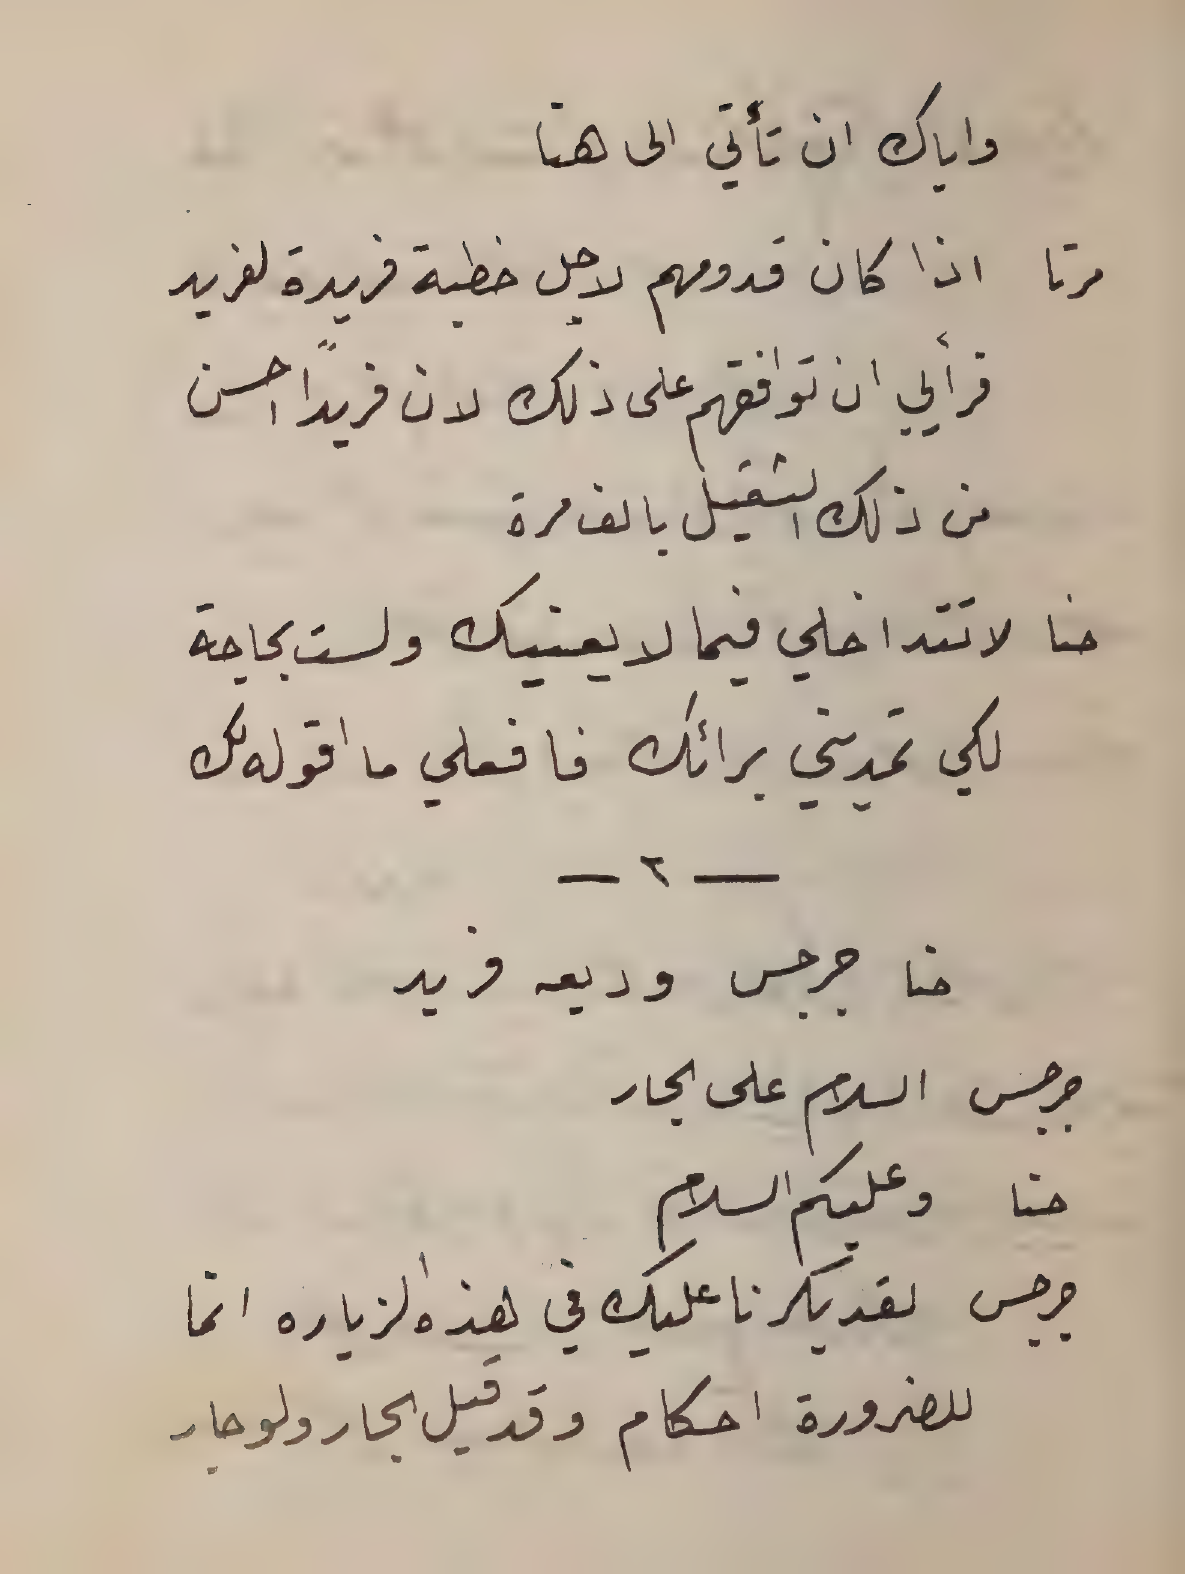 واياك ان تأتي الى هنا
مرتا اذا كان قدومهم لاجل خطبة فريدة لفريد
فرأيي ان توافقهم على ذلك لان فريداً احسن
من ذلك الثقيل بالف مرة
حنا لا تتداخلي فيما لا يعنيك ولست بحاجة
لكي تمديني برائك فافعلي ما اقوله لك
— ٢ —
حنا جرجس وديعه فريد
جرجس السلام على الجار
حنا وعليكم السلام
جرجس لقد بكرنا عليك في هذه الزياره انما
للضرورة احكام وقد قيل الجار ولو جار